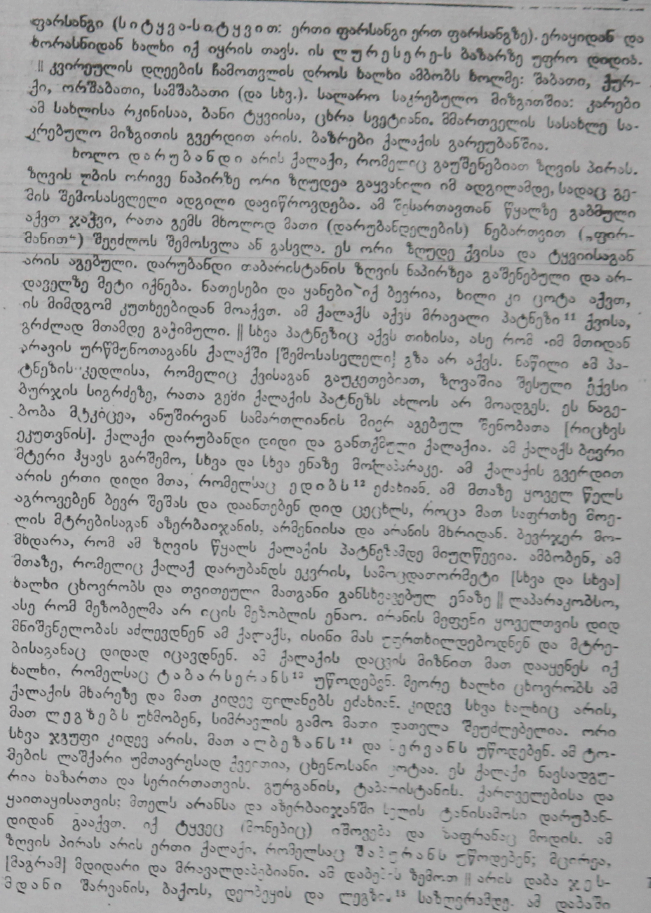 ფარსანგი (სიტყვა-სიტყვით: ერთი ფარსანგი ერთ ფარსანგზე). ერაყიდან და
ხორასნიდან ხალხი იქ იყრის თავს. ის ლურესერე-ს ბაზარზე უფრო დიდია.
|| კვირეულის დღეების ჩამოთვლის დროს ხალხი ამბობს ხოლმე: შაბათი, ქურ-
ქი, ორშაბათი, სამშაბათი (და სხვ.). სალარო საკრებულო მიზგითშია: კარები
ამ სახლისა რკინისაა, ბანი ტყვიისა, ცხრა სვეტიანი. მმართველის სასახლე სა-
კრებულო მიზგითის გვერდით არის. ბაზრები ქალაქის გარეუბანშია.
ხოლო დარუბანდი არის ქალაქი, რომელიც გაუშენებიათ ზღვის პირას.
ზღვის უბის ორივე ნაპირზე ორი ზღუდეა გაყვანილი იმ ადგილამდე, სადაც გე-
მის შემოსასვლელი ადგილი დავიწროვდება. ამ შესართავთან წყალზე გაბმული
აქვთ ჯაჭვი, რათა გემს მხოლოდ მათი (დარუბანდელების) ნებართვით („ფირ-
მანით“) შეეძლოს შემოსვლა ან გასვლა. ეს ორი ზღუდე ქვისა და ტყვიისაგან
არის აგებული. დარუბანდი თაბარისტანის ზღვის ნაპირზეა გაშენებული და არ-
დაველზე მეტი იქნება. ნათესები და ყანები იქ ბევრია, ხილი კი ცოტა აქვთ,
ის მიმდგომ კუთხეებიდან მოაქვთ. ამ ქალაქს აქვს მრავალი პატნეზი¹¹ ქვისა,
გრძლად მთამდე გაჭიმული. || სხვა პატნეზიც აქვს თიხისა, ასე რომ იმ მთიდან
არავის ურწმუნოთაგანს ქალაქში [შემოსასვლელი] გზა არ აქვს. ნაწილი ამ პა-
ტნეზის კედლისა, რომელიც ქვისაგან გაუკეთებიათ, ზღვაშია შესული ექვსი
ბურჯის სიგრძეზე, რათა გემი ქალაქის პატნეზს ახლოს არ მოადგეს. ეს ნაგე-
ბობა მტკიცეა, ანუშირვან სამართლიანის მიერ აგებულ შენობათა [რიცხვს
ეკუთვნის]. ქალაქი დარუბანდი დიდი და განთქმული ქალაქია. ამ ქალაქს ბევრი
მტერი ჰყავს გარშემო, სხვა და სხვა ენაზე მოლაპარაკე. ამ ქალაქის გვერდით
არის ერთი დიდი მთა, რომელსაც ედიბს¹² ეძახიან. ამ მთაზე ყოველ წელს
აგროვებენ ბევრ შეშას და დაანთებენ დიდ ცეცხლს, როცა მათ საფრთხე მოე-
ლის მტრებისაგან აზერბაიჯანის, არმენიისა და არანის მხრიდან. ბევრჯერ მო-
მხდარა, რომ ამ ზღვის წყალს ქალაქის პატნეზამდე მიუღწევია. ამბობენ, ამ
მთაზე, რომელიც ქალაქ დარუბანდს ეკვრის, სამოცდათორმეტი [სხვა და სხვა]
ხალხი ცხოვრობს და თვითეული მათგანი განსხვავებულ ენაზე || ლაპარაკობსო,
ასე რომ მეზობელმა არ იცის მეზობლის ენაო. ირანის მეფენი ყოველთვის დიდ
მნიშვნელობას აძლევდნენ ამ ქალაქს, ისინი მას უფრთხილდებოდნენ და მტრე-
ბისაგანაც დიდად იცავდნენ. ამ ქალაქის დაცვის მიზნით მათ დააყენეს იქ
ხალხი, რომელსაც ტაბარსერანს¹³ უწოდებენ. მეორე ხალხი ცხოვრობს ამ
ქალაქის მხარეზე და მათ კიდევ ფილანებს ეძახიან. კიდევ სხვა ხალხიც არის,
მათ ლეგზებს უხმობენ, სიმრავლის გამო მათი დათვლა შეუძლებელია. ორი
სხვა ჯგუფი კიდევ არის, მათ ალბეზანს¹⁴ და შერვანს უწოდებენ. ამ ტო-
მების ლაშქარი უმთავრესად ქვეითია, ცხენოსანი ცოტაა. ეს ქალაქი ნავსადგუ-
რია ხაზართა და სერირთათვის. გურგანის, ტაბარისტანის, ქართველებისა და
ყაითაყისათვის; მთელს არანსა და აზერბაიჯანში სელის ტანისამოსი დარუბან-
დიდან გააქვთ. იქ ტყვეც (მონებიც) იშოვება და ზაფრანაც მოდის. ამ
ზღვის პირას არის ერთი ქალაქი, რომელსაც შაბურანს უწოდებენ; მცირეა,
[მაგრამ] მდიდარი და მრავალდაბებიანი. ამ დაბების ზემოთ || არის დაბა ჯეს-
მდანი შარვანის, ბაქოს, და ლეგზი.¹⁵ საზღვრამდე. ამ დაბაში